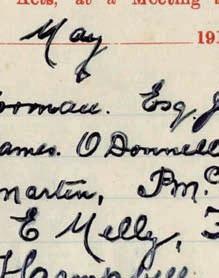 Acts, at a Meeting
May 191
orman. Esq. J
ames. O'Donnell
Martin, P.M.
E Melly,